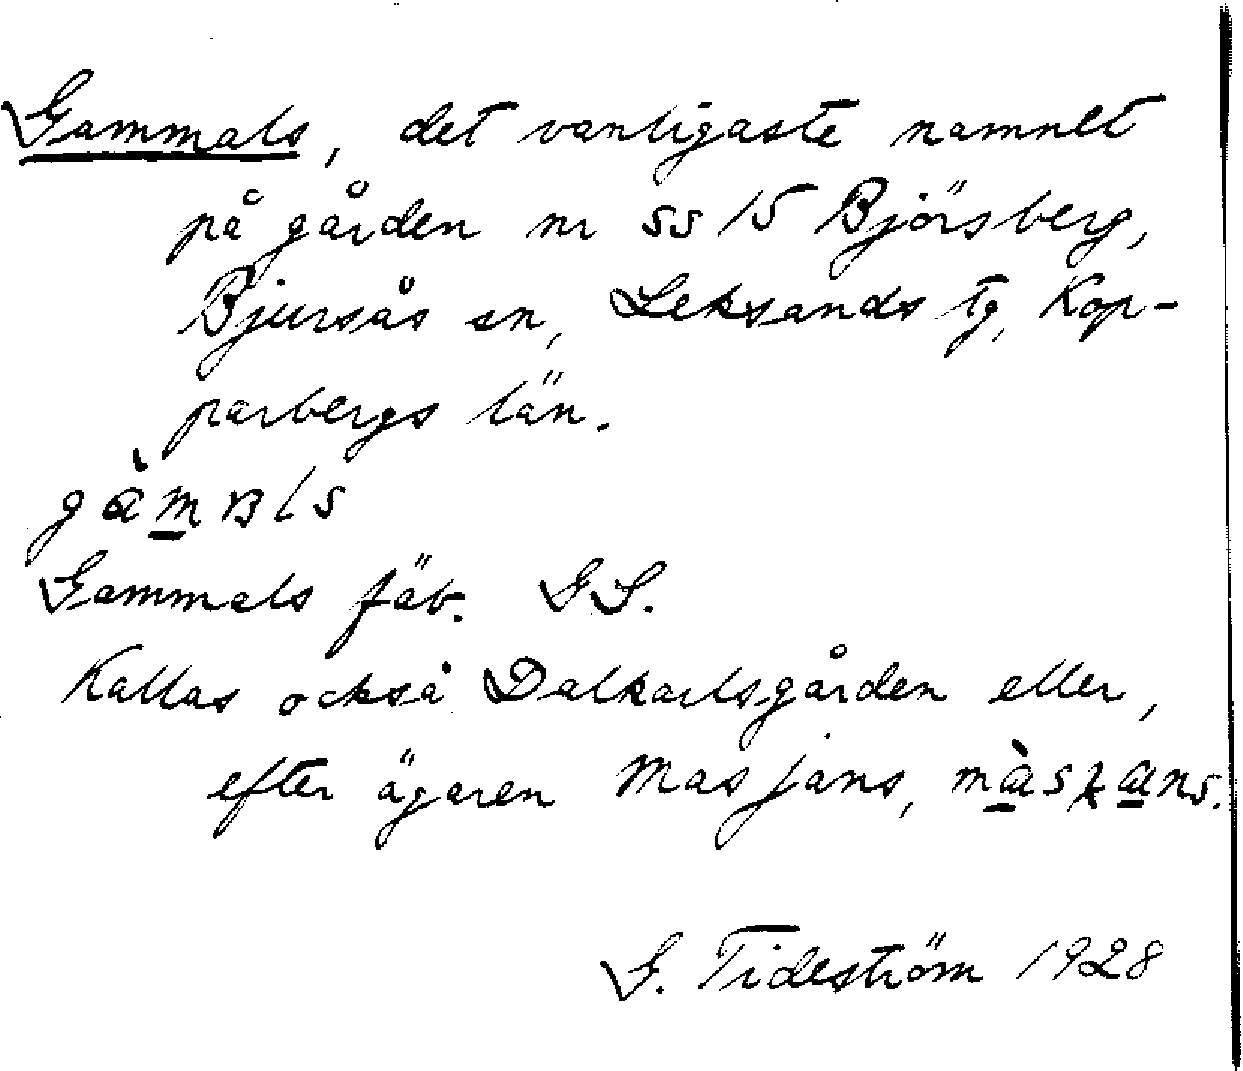 Gammals, det vanligaste namnet
på gården nr ss 15 Björsberg,
Bjursås sn, Leksands tg, Kop-
parbergs län.
gàmals
Gammals fäb. GS.
Kallas också Dalkarlsgården eller,
efter ägaren Mas Jans,
G. Tideström 1928